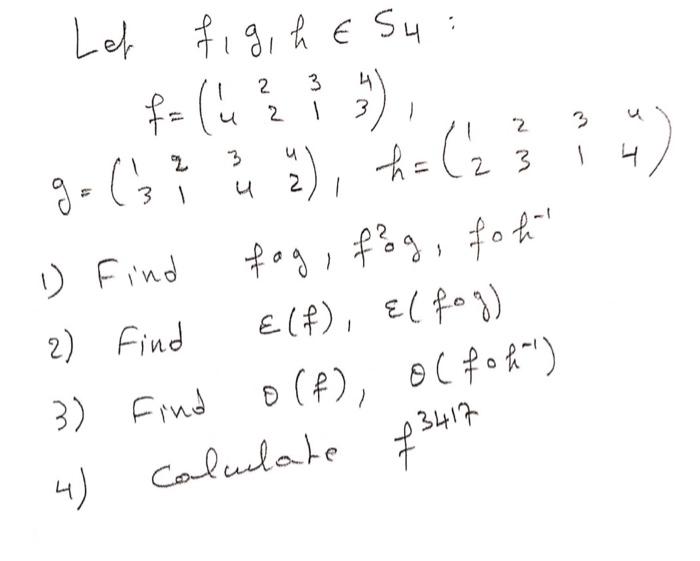 Let f, g, h ∈ S4 :
f = (1 2 3 4 / 4 2 1 3),
g = (1 2 3 4 / 3 1 4 2), h = (1 2 3 4 / 2 3 1 4)
1) Find f∘g, f²∘g, f∘h⁻¹
2) Find ε(f), ε(f∘g)
3) Find o(f), o(f∘h⁻¹)
4) Calculate f³⁴¹⁷